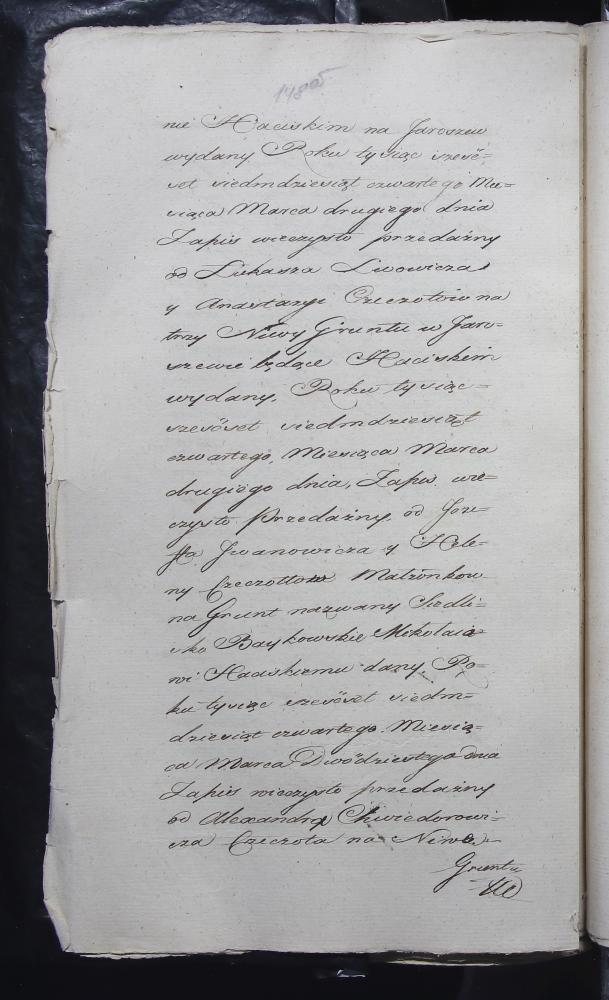 nie Haciskim na Jaroszew
wydany Roku tysiąc szesć=
set siedmdziesiąt czwartego Mie=
siąca Marca drugiego dnia
Zapis wieczysto przedażny
od Łukasza Lwowicza
y Anastazyi Czeczotów na
trzy Niwy Gruntu w Jaro=
szewie będące Haciskim
wydany, Roku tysiąc=
szesćset siedmdziesiąt
czwartego, Miesiąca Marca
drugiego dnia, Zapis wie=
czysto Przedażny, od Joze=
fa Jwanowicza y Hele=
ny Czeczottow Małżonkow
na Grunt nazwany Siedli=
sko Baykowskie Mikołaio=
wi Haciskiemu dany, Ro=
ku tysiąc szesćset siedm=
dziesiąt czwartego. Miesią=
ca Marca Dwódziestego dnia
Zapis wieczysto przedażny
od Alexandra Chwiedorowi=
cza Czeczota na Niwę
Gruntu